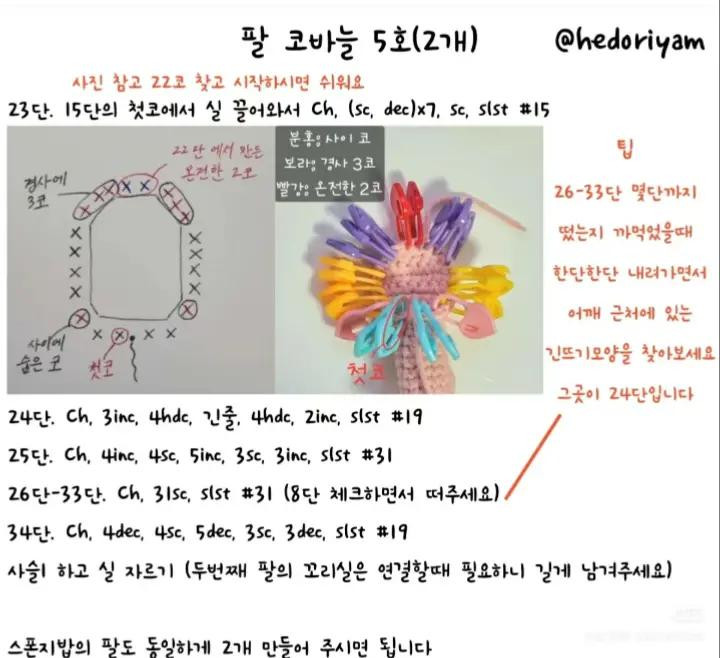 팔 코바늘 5호(2개)
@hedoriyam
사진 참고 22코 찾고 시작하시면 쉬워요
23단. 15단의 첫코에서 실 끌어와서 Ch, (sc, dec)x7, sc, slst #15
22단에서 만든
온전한 2코
경사에
3코
사이에
숨은 코
첫코
분홍: 사이 코
보라: 경사 3코
빨강: 온전한 2코
첫코
팁
26-33단 몇단까지
떴는지 까먹었을때
한단한단 내려가면서
어깨 근처에 있는
긴뜨기모양을 찾아보세요
그곳이 24단입니다
24단. Ch, 3inc, 4hdc, 긴줄, 4hdc, 2inc, slst #19
25단. Ch, 4inc, 4sc, 5inc, 3sc, 3inc, slst #31
26단-33단. Ch, 31sc, slst #31 (8단 체크하면서 떠주세요)
34단. Ch, 4dec, 4sc, 5dec, 3sc, 3dec, slst #19
사슬1 하고 실 자르기 (두번째 팔의 꼬리실은 연결할때 필요하니 길게 남겨주세요)
스폰지밥의 팔도 동일하게 2개 만들어 주시면 됩니다